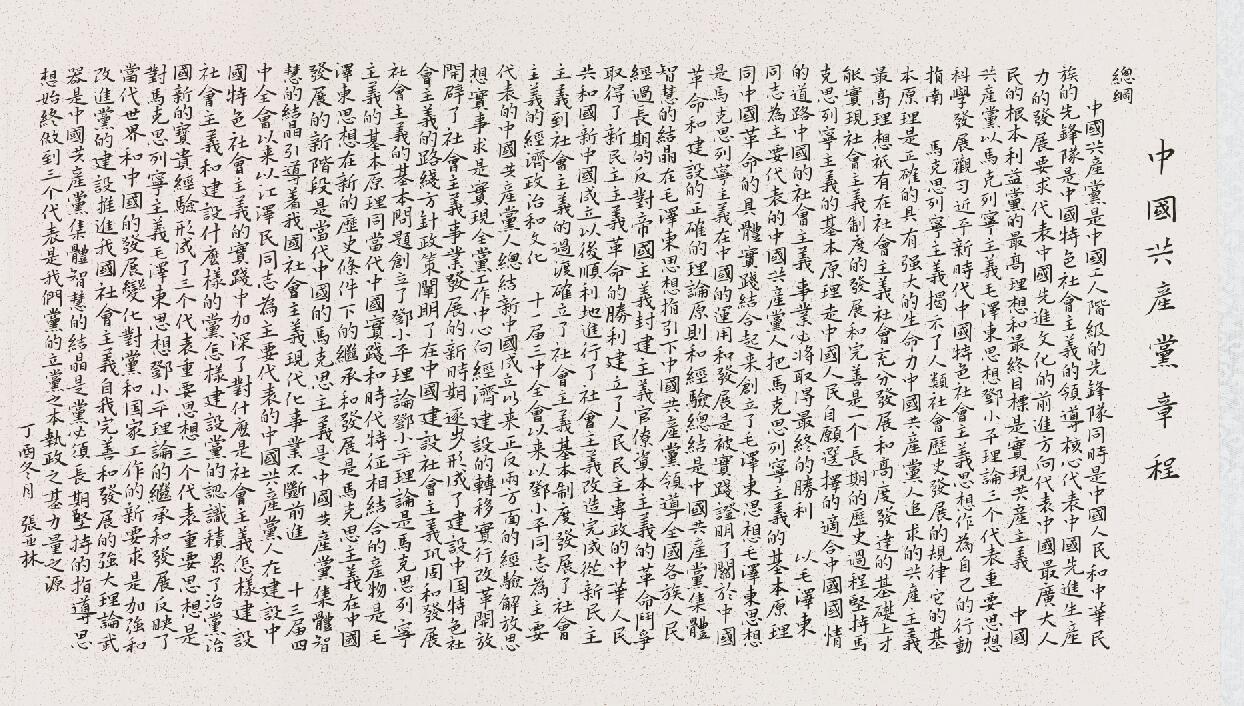 中國共產黨章程
總綱
中國共產黨是中國工人階級的先鋒隊同時是中國人民和中華民
族的先鋒隊是中國特色社會主義的領導核心代表中國先進生產
力的發展要求代表中國先進文化的前進方向代表中國最廣大人
民的根本利益黨的最高理想和最終目標是實現共產主義 中國
共產黨以馬克列寧主義毛澤東思想鄧小平理論三個代表重要思想
科學發展觀习近平新時代中國特色社會主義思想作為自己的行動
指南 馬克思列寧主義揭示了人類社會歷史發展的規律它的基
本原理是正確的具有强大的生命力中國共產黨人追求的共產主義
最高理想衹有在社會主義社會充分發展和高度發達的基礎上才
能實現社會主義制度的發展和完善是一个長期的歷史過程堅持馬
克思列寧主義的基本原理走中國人民自願選擇的適合中國國情
的道路中國的社會主義事業必將取得最終的勝利 以毛澤東
同志為主要代表的中國共產黨人把馬克思列寧主義的基本原理
同中國革命的具體實踐結合起來創立了毛澤東思想毛澤東思想
是馬克思列寧主義在中國的運用和發展是被實踐證明了關於中國
革命和建設的正確的理論原則和經驗總結是中國共產黨集體
智慧的結晶在毛澤東思想指引下中國共產黨領導全國各族人民
經過長期的反對帝國主義封建主義官僚資本主義的革命鬥爭
取得了新民主主義革命的勝利建立了人民民主專政的中華人民
共和國新中國成立以後順利地進行了社會主義改造完成從新民主
主義到社會主義的過渡確立了社會主義基本制度發展了社會
主義的經濟政治和文化 十一届三中全會以來以鄧小平同志為主要
代表的中國共產黨人總結新中國成立以來正反兩方面的經驗解放思
想實事求是實現全黨工作中心向經濟建設的轉移實行改革開放
開辟了社會主義事業發展的新時期逐步形成了建設中国特色社
會主義的路綫方針政策闡明了在中國建設社會主義巩固和發展
社會主義的基本問題創立了鄧小平理論鄧小平理論是馬克思列寧
主義的基本原理同當代中國實踐和時代特征相結合的産物是毛
澤東思想在新的歷史條件下的繼承和發展是馬克思主義在中國
發展的新階段是當代中國的馬克思主義是中國共產黨集體智
慧的結晶引導著我國社會主義現代化事業不斷前進 十三届四
中全會以來以江澤民同志為主要代表的中國共產黨人在建設中
國特色社會主義的實踐中加深了對什麽是社會主義怎樣建設
社會主義和建設什麽樣的黨怎樣建設黨的認識積累了治黨治
國新的寶貴經驗形成了三个代表重要思想三個代表重要思想是
對馬克思列寧主義毛澤東思想鄧小平理論的繼承和發展反映了
當代世界和中國的發展變化對黨和国家工作的新要求是加強和
改進黨的建設推進我國社會主義自我完善和發展的強大理論武
器是中國共產黨集體智慧的結晶是黨必須長期堅持的指導思
想始終做到三个代表是我們黨的立黨之本執政之基力量之源
丁酉冬月 張亚林